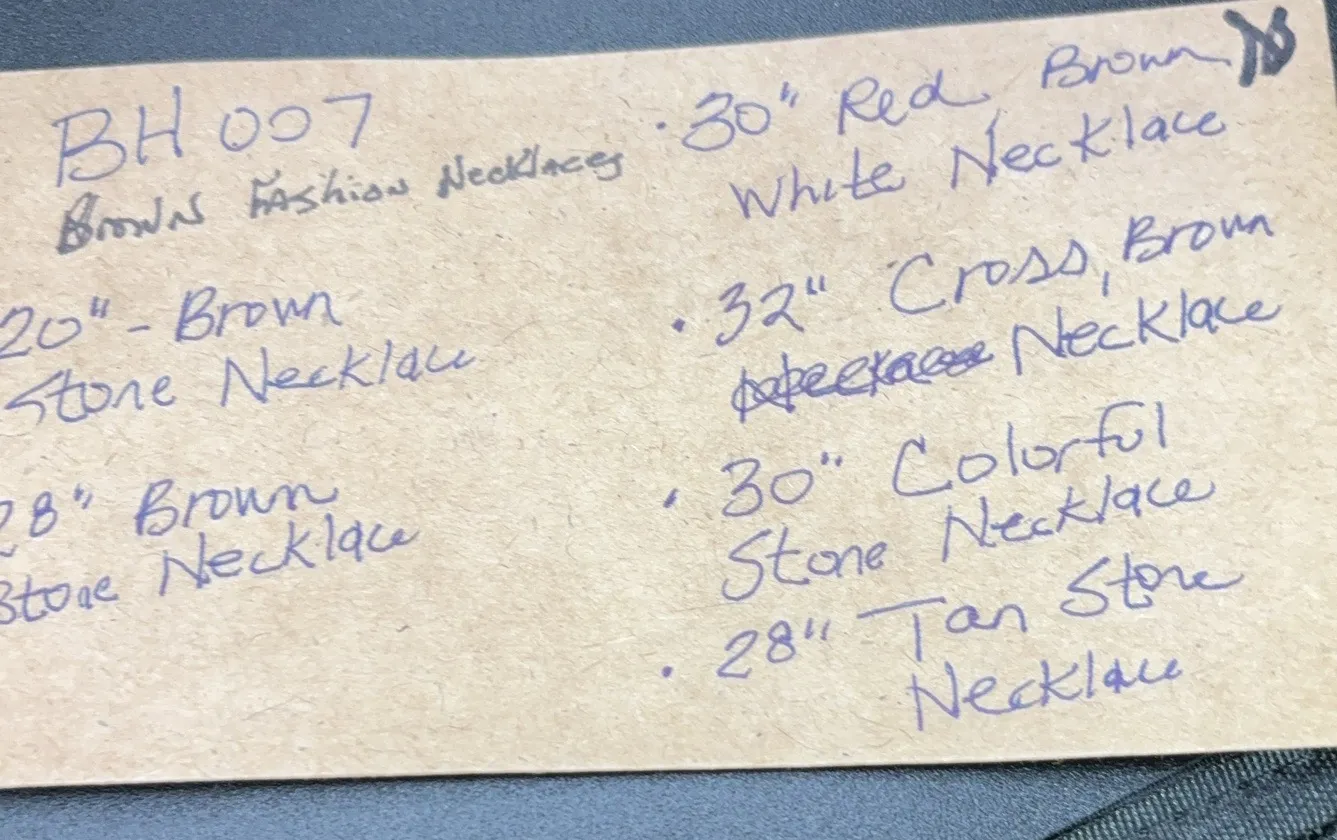 BH 007
Browns Fashion Necklaces
20" - Brown
Stone Necklace
28" Brown
Stone Necklace
• 30" Red, Brown
White Necklace
• 32" Cross, Brown
Necklace
• 30" Colorful
Stone Necklace
• 28" Tan Stone
Necklace